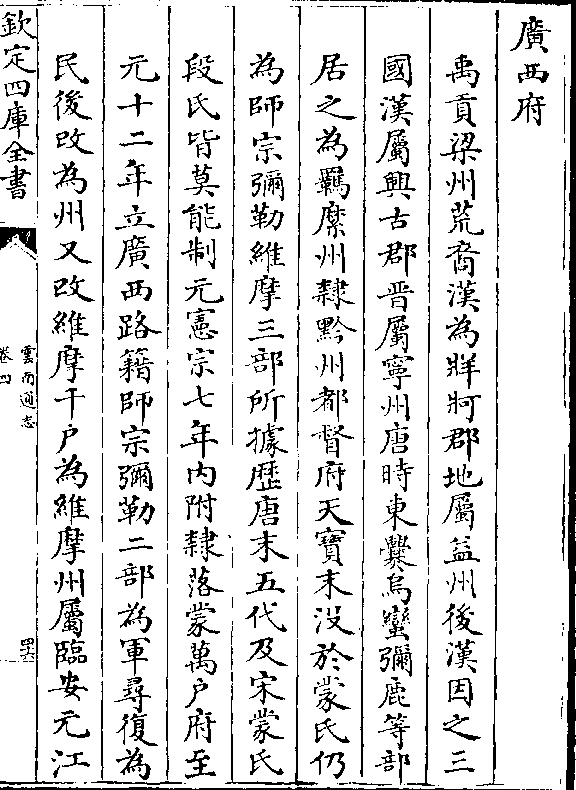 廣西府
禹貢梁州荒裔漢為牂牁郡地屬益州後漢因之三
國漢屬興古郡晋屬寧州唐時東爨烏蠻彌鹿等部
居之為羈縻州隸黔州都督府天寶末没於蒙氏仍
為師宗彌勒維摩三部所據歴唐末五代及宋蒙氏
段氏皆莫能制元憲宗七年内附隸落蒙萬户府至
元十二年立廣西路籍師宗彌勒二部為軍尋復為
民後改為州又改維摩千户為維摩州屬臨安元江
欽定四庫全書
雲南通志
卷四